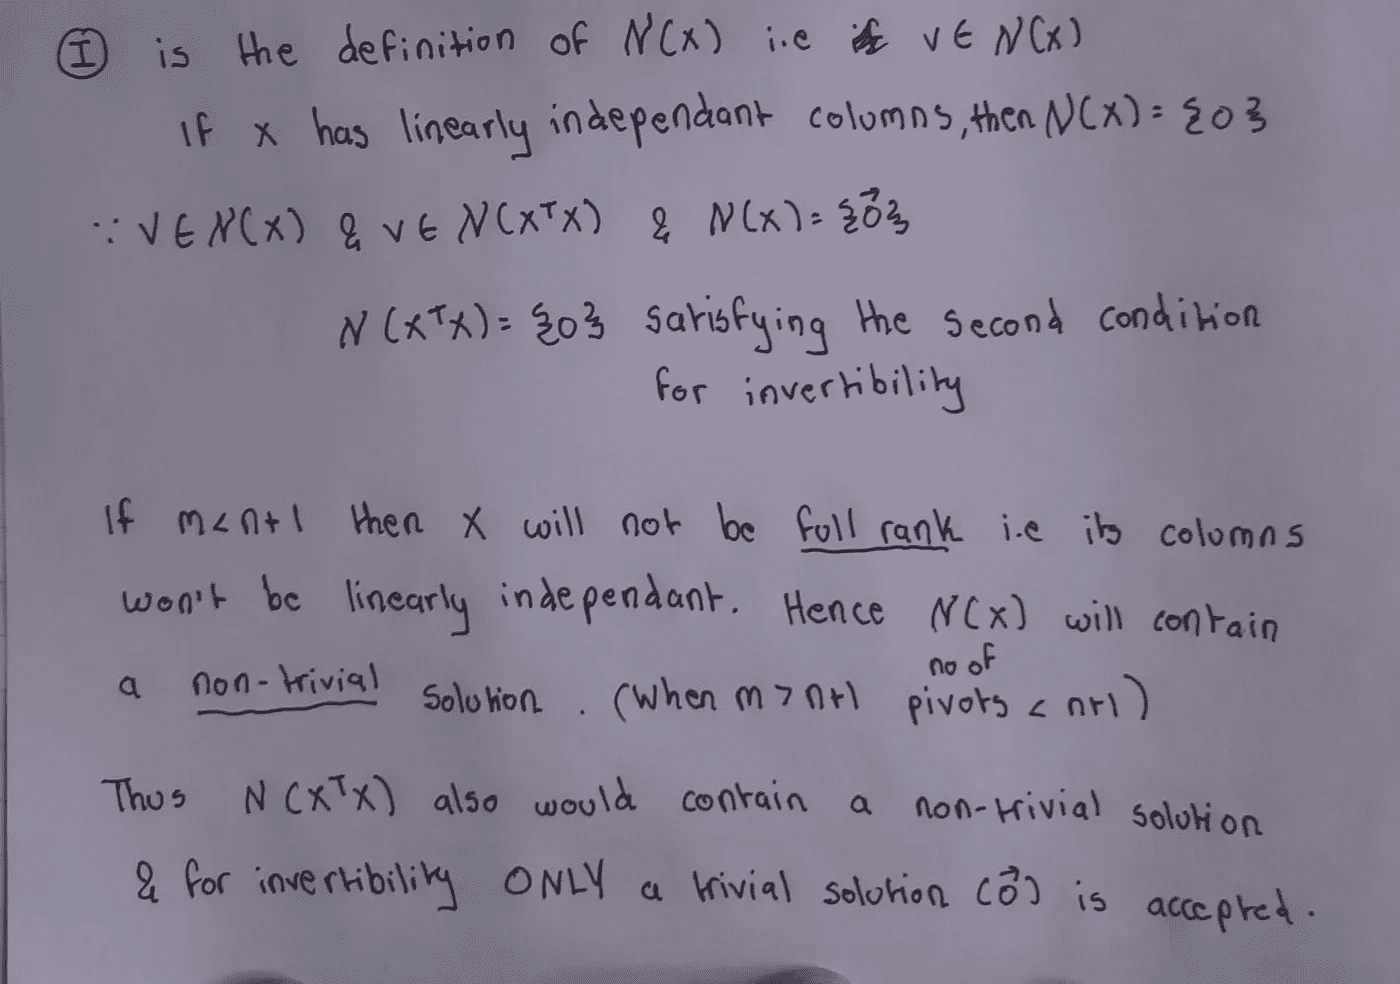 Ⓘ is the definition of N(x) i.e v ∈ N(x)
If x has linearly independant columns, then N(x) = {0}
∵ v ∈ N(x) & v ∈ N(xᵀx) & N(x) = {0⃗}
N(xᵀx) = {0} satisfying the second condition
for invertibility
If m < n+1 then x will not be full rank i.e its columns
won't be linearly independant. Hence N(x) will contain
a non-trivial solution. (when m > n+1 no of pivots < n+1)
Thus N(xᵀx) also would contain a non-trivial solution
& for invertibility ONLY a trivial solution (0⃗) is accepted.